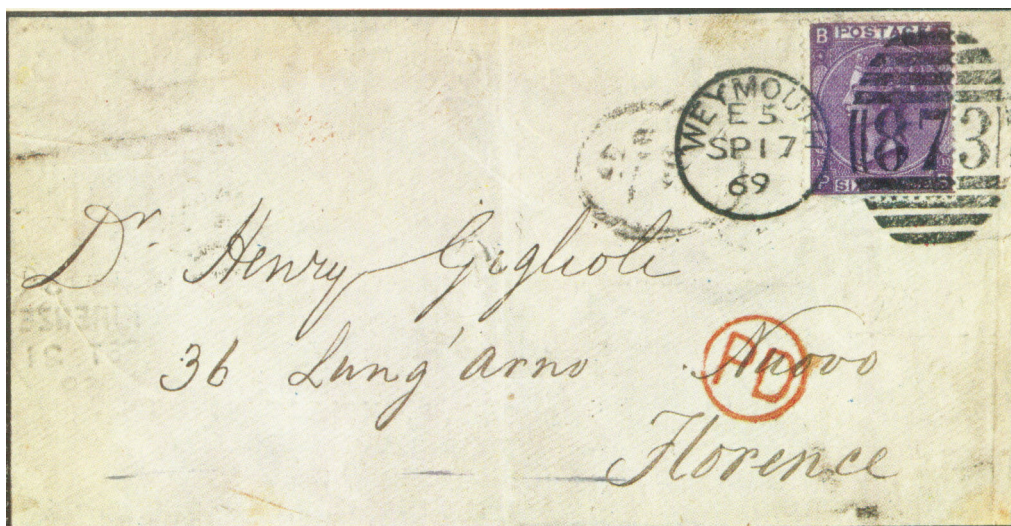 B POSTAGE
WEYMOUTH
E 5
SP 17
69
873
P SIX
Dr. Henry Giglioli
36 Lung'arno Nuovo
PD
Florence